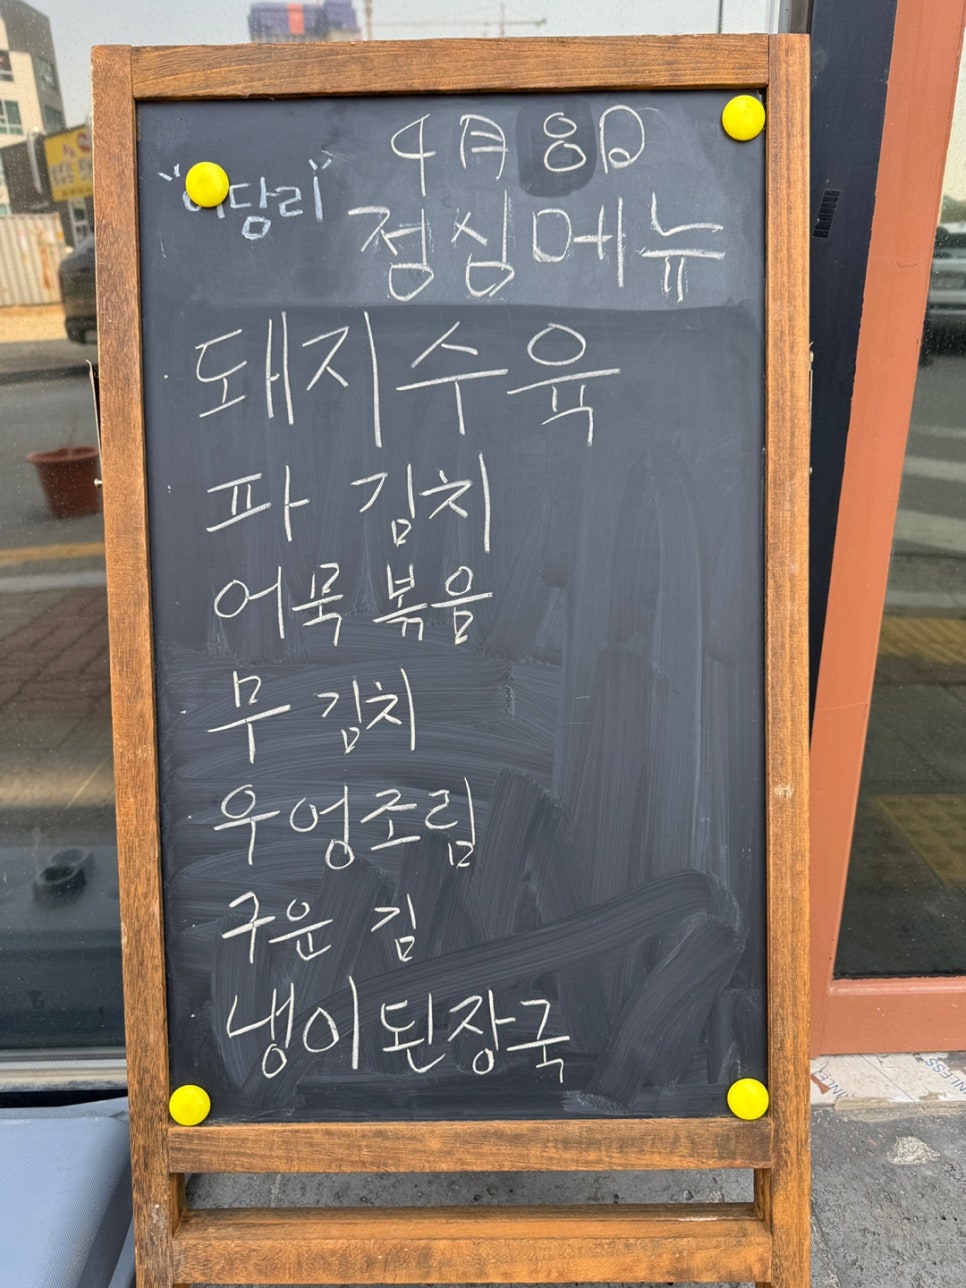 4月 8日
점심메뉴
돼지수육
파 김치
어묵 볶음
무 김치
우엉조림
구운 김
냉이된장국